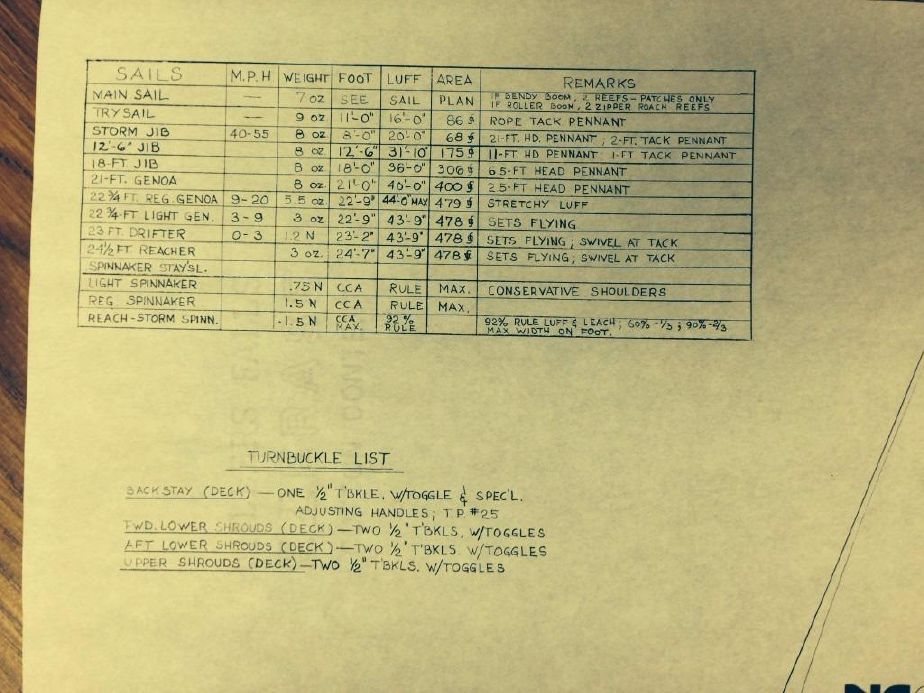 SAILS M.P.H WEIGHT FOOT LUFF AREA REMARKS
MAIN SAIL — 7 OZ SEE SAIL PLAN IF BENDY BOOM, 2 REEFS - PATCHES ONLY
IF ROLLER BOOM, 2 ZIPPER ROACH REEFS
TRYSAIL — 9 OZ 11'-0" 16'-0" 86 ROPE TACK PENNANT
STORM JIB 40-55 8 OZ 8'-0" 20'-0" 68 21-FT. HD. PENNANT, 2-FT. TACK PENNANT
12'-6" JIB 8 OZ 12'-6" 31'-10" 175 11-FT HD PENNANT 1-FT TACK PENNANT
18-FT JIB 8 OZ 18'-0" 36'-0" 306 6.5-FT HEAD PENNANT
21-FT. GENOA 8 OZ. 21'-0" 40'-0" 400 2.5-FT HEAD PENNANT
22 3/4 FT. REG. GENOA 9-20 5.5 OZ 22'-9" 44'-0" MAX 479 STRETCHY LUFF
22 3/4-FT LIGHT GEN. 3-9 3 OZ 22'-9" 43'-9" 478 SETS FLYING
23 FT. DRIFTER 0-3 1.2 N 23'-2" 43'-9" 478 SETS FLYING, SWIVEL AT TACK
24 1/2 FT REACHER 3 OZ. 24'-7" 43'-9" 478 SETS FLYING, SWIVEL AT TACK
SPINNAKER STAY'SL.
LIGHT SPINNAKER .75 N CCA RULE MAX. CONSERVATIVE SHOULDERS
REG. SPINNAKER 1.5 N CCA RULE MAX.
REACH-STORM SPINN. 1.5 N CCA MAX. 92% RULE 92% RULE LUFF & LEACH; 60% -1/3; 90% -2/3
MAX WIDTH ON FOOT.
TURNBUCKLE LIST
BACKSTAY (DECK) — ONE 1/2" T'BKLE. W/TOGGLE & SPEC'L.
ADJUSTING HANDLES; T.P. #25
FWD. LOWER SHROUDS (DECK) — TWO 1/2" T'BKLS, W/TOGGLES
AFT LOWER SHROUDS (DECK) — TWO 1/2" T'BKLS. W/TOGGLES
UPPER SHROUDS (DECK) — TWO 1/2" T'BKLS. W/TOGGLES